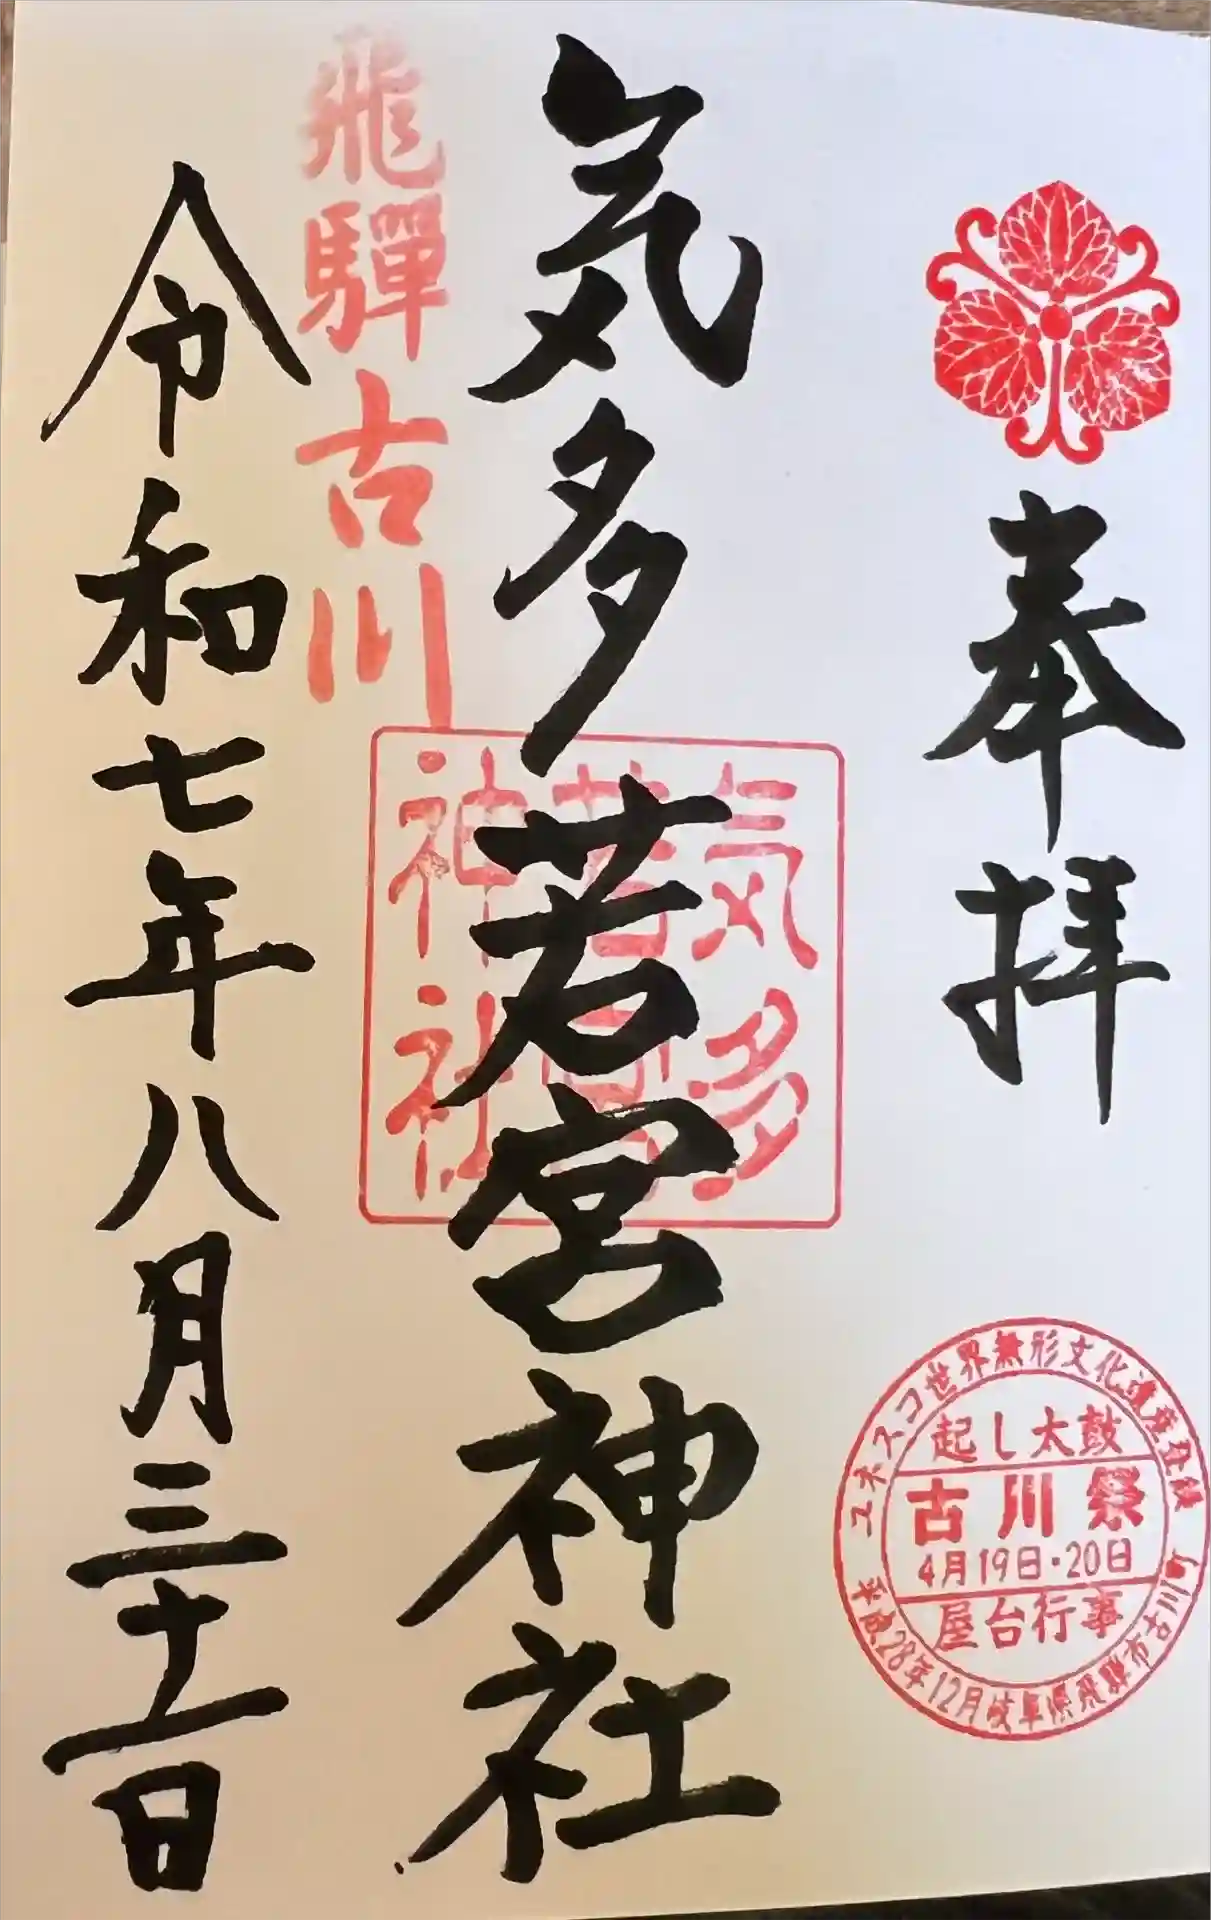 奉拝
ユネスコ世界無形文化遺産登録
起し太鼓
古川祭
4月19日・20日
屋台行事
平成28年12月岐阜県飛騨市古川町
気多若宮神社
気多
若宮
神社
飛騨古川
令和七年八月三十一日